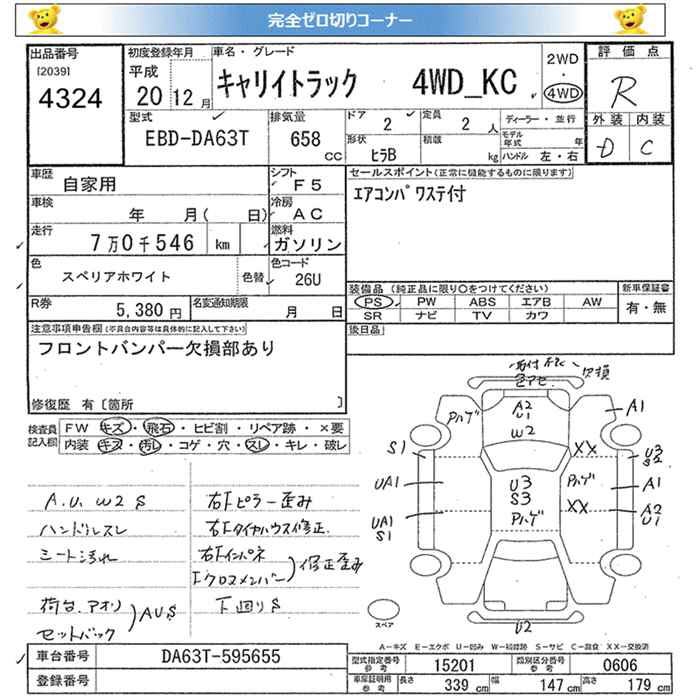 完全ゼロ切りコーナー
出品番号 初度登録年月 車名・グレード 2WD 評価点
[2039] 平成 キャリイトラック 4WD_KC ・ R
4324 20 12月 4WD
型式 排気量 ドア 定員 ディーラー・並行 外装 内装
EBD-DA63T 658 CC 2 2人 モデル年式 年 D C
形状 積載 ハンドル 左・右
ヒラB kg
車歴 自家用 シフト F5 セールスポイント(正常に機能するものに限ります)
車検 年 月( 日) 冷房 AC エアコンパワステ付
走行 7万0千546 km 燃料 ガソリン
色 スペリアホワイト 色替 色コード 26U
装備品(純正品に限り○をつけてください) 新車保証書
PS PW ABS エアB AW 有・無
SR ナビ TV カワ
R券 5,380円 名変通知期限 月 日
後日品
注意事項申告欄(不具合内容等は具体的に記入して下さい)
フロントバンパー欠損部あり
修復歴 有〔箇所 〕
検査員記入欄 FW キズ・飛石・ヒビ割・リペア跡・×要
内装 キズ・汚れ・コゲ・穴・スレ・キレ・破レ
A.U. W2 S 右Fピラー歪み
ハンドルスレ 右Fタイヤハウス修正
シート汚れ 右Fインパネ
Fクロスメンバー 修正歪み
荷台.アオリ 下廻りS
セットバック AUS
色アセ 欠損
Pハゲ A2 U1 A1
W2
S1 XX U3 S2
UA1 U3 S3 Pハゲ A1
UA1 S1 Pハゲ XX A2 U1
U2
スペア
A-キズ E-エクボ U-凹み W-補修跡 S-サビ C-腐食 XX-交換済
車台番号 DA63T-595655 型式指定番号参考 15201 類別区分番号参考 0606
登録番号 車庫証明用参考 長さ 339 cm 幅 147 cm 高さ 179 cm